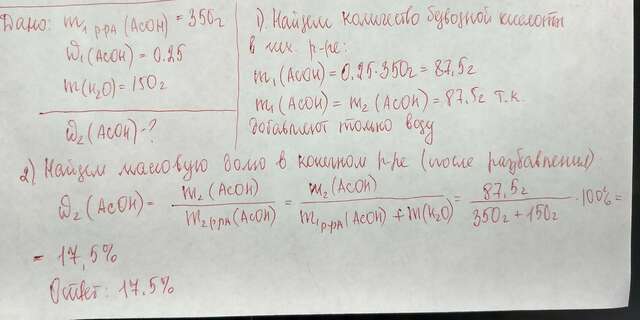 Дано: m₁ р-ра (AcOH) = 350г
ω₁(AcOH) = 0.25
m(H₂O) = 150г
ω₂(AcOH) - ?
1). Найдем количество безводной кислоты
в исх. р-ре:
m₁(AcOH) = 0,25·350г = 87,5г
m₁(AcOH) = m₂(AcOH) = 87,5г т.к.
добавляют только воду
2) Найдем массовую долю в конечном р-ре (после разбавления)
ω₂(AcOH) = m₂(AcOH) / m₂ р-ра(AcOH) = m₂(AcOH) / m₁ р-ра(AcOH) + m(H₂O) = 87,5г / 350г + 150г · 100% =
= 17,5%
Ответ: 17.5%